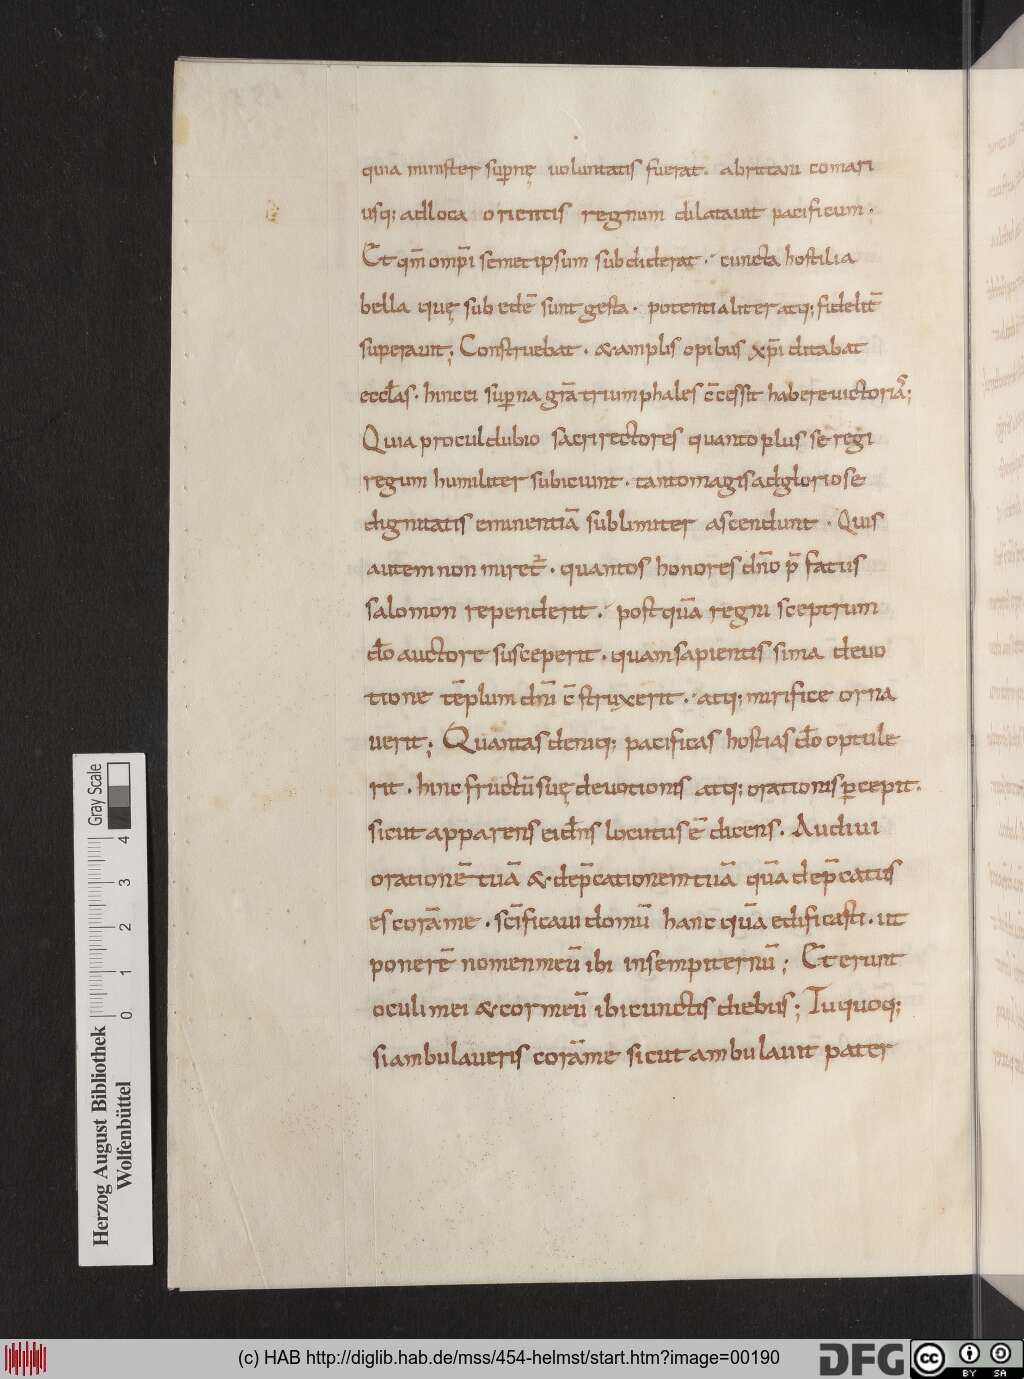 quia minister sup̄nę uoluntatis fuerat. abrittani comari
usq; adloca orientis regnum dilatauit pacificum.
Et qm̄ omp̄i semetipsum subdiderat. cuncta hostilia
bella quę sub edē sunt gesta. potentialiter atq; fidelit̄
superauit; Construebat. &amplis opibus xp̄i ditabat
eccl̄as. hincei sup̄na gr̄a triumphales c̄cessit habere uictoriās;
Quia procul dubio sacri rectores quanto plus se regi
regum humiliter subiciunt. tanto magis ad gloriose
dignitatis eminentiā sublimiter ascendunt. Quis
autem non miret᷑. quantos honores dn̄o p̄fatus
salomon rependerit. postquā regni sceptrum
do̅ auctore susceperit. quam sapientissima deuo
tione tēplum dn̄i c̄struxerit. atq; mirifice orna
uerit; Quantas deniq; pacificas hostias do̅ optule
rit. hinc fructū suę deuotionis atq; orationis p̱cepit.
sicut apparens ei dn̄s locutus ē dicens. Audiui
orationē tuā & dep̄cationem tuā quā dep̄catus
es corā me. sc̄ificaui domū hanc quā edificasti. ut
ponerē nomen meū ibi in sempiternū; Et erunt
oculi mei & cor meū ibi cunctis diebus; Tu quoq;
si ambulaueris corā me sicut ambulauit pater
Gray Scale
4
3
2
1
0
Herzog August Bibliothek
Wolfenbüttel
(c) HAB http://diglib.hab.de/mss/454-helmst/start.htm?image=00190
DFG
cc
BY SA